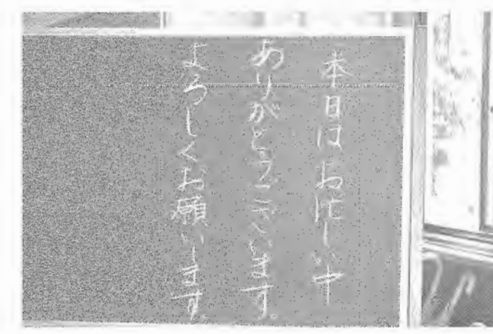 本日はお忙しい中
ありがとうございます。
よろしくお願いします。